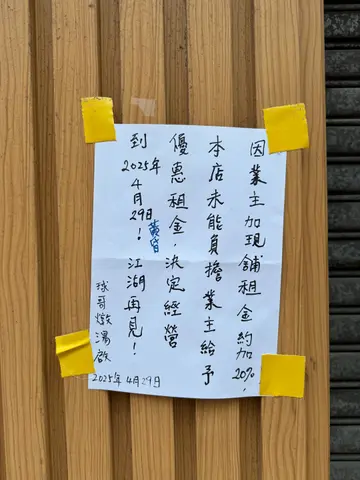 因業主加現舖租金約加20%,
本店未能負擔業主給予
優惠租金.決定經營
到2025年4月29日黃昏!江湖再見!
球哥燉湯啟
2025年4月29日